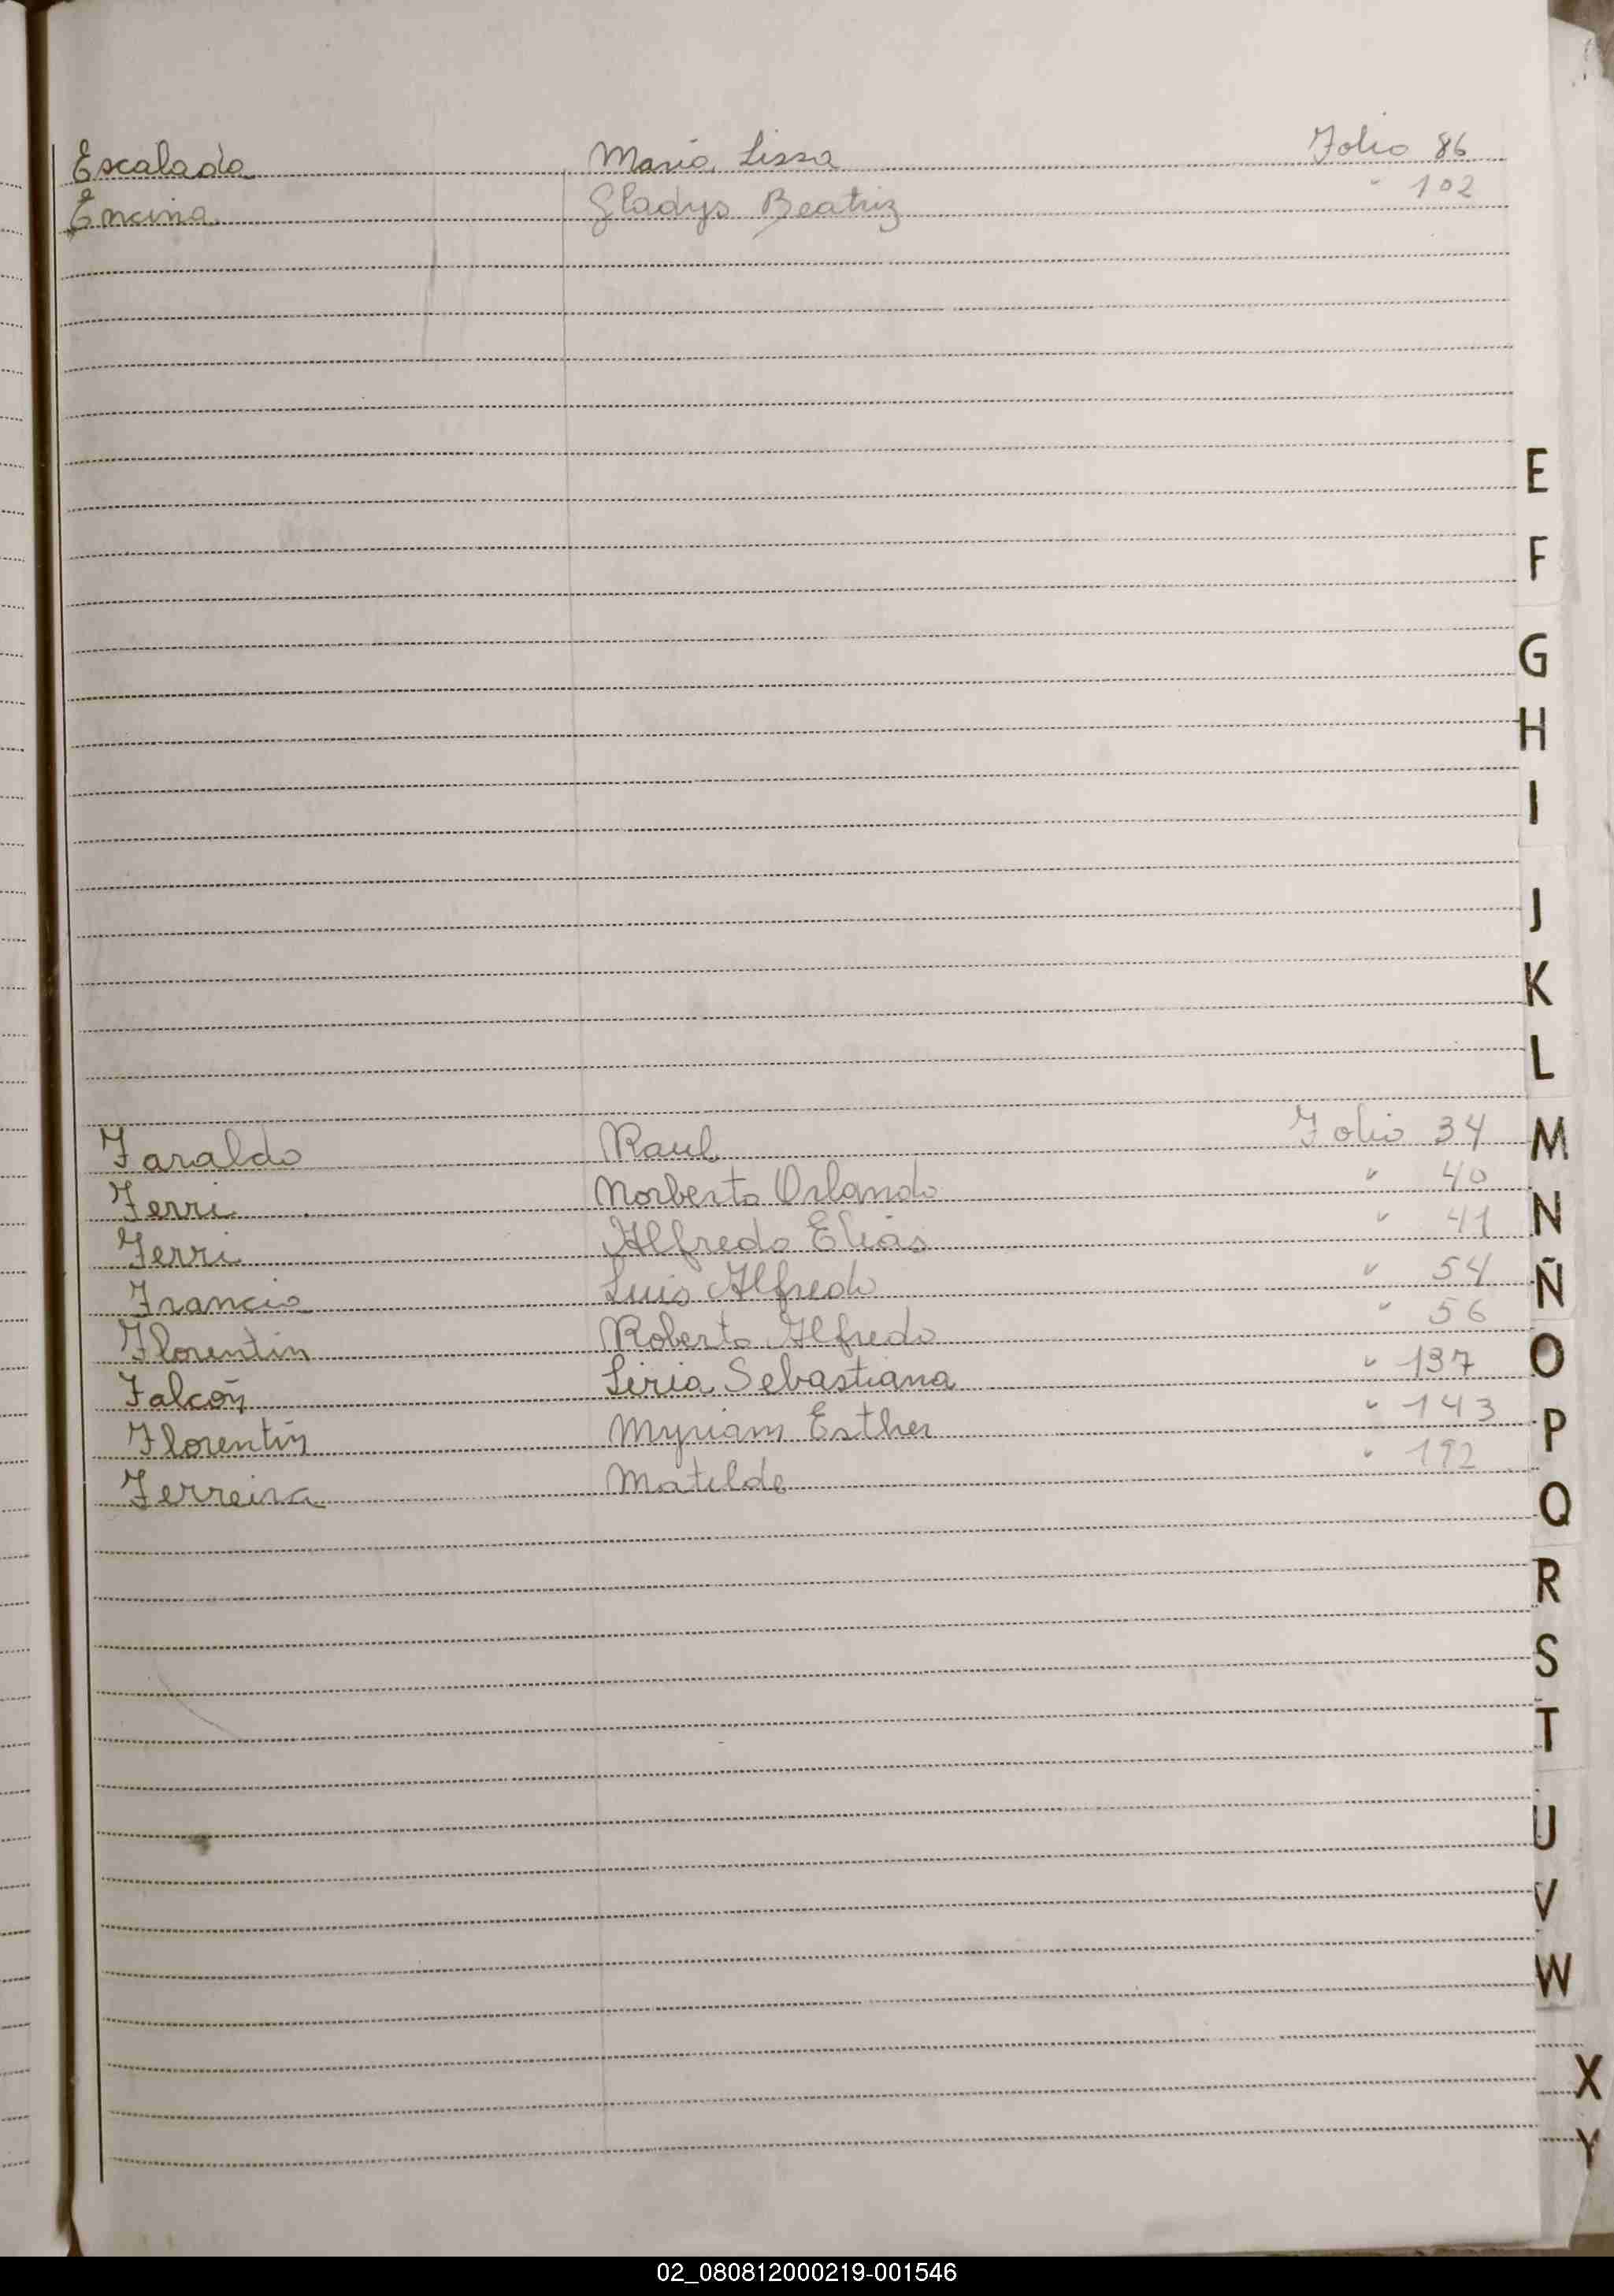 Escalada Maria Lissa Folio 86
Encina Gladys Beatriz " 102
E
F
G
H
I
J
K
L
Faraldo Raul Folio 34
M
Ferri Norberto Orlando " 40
Ferri Alfredo Elias " 41
N
Francia Luis Alfredo " 54
Ñ
Florentin Roberto Alfredo " 56
O
Falcón Liria Sebastiana " 137
Florentin Myriam Esther " 143
P
Ferreira Matilde " 192
Q
R
S
T
U
V
W
X
Y
02_080812000219-001546